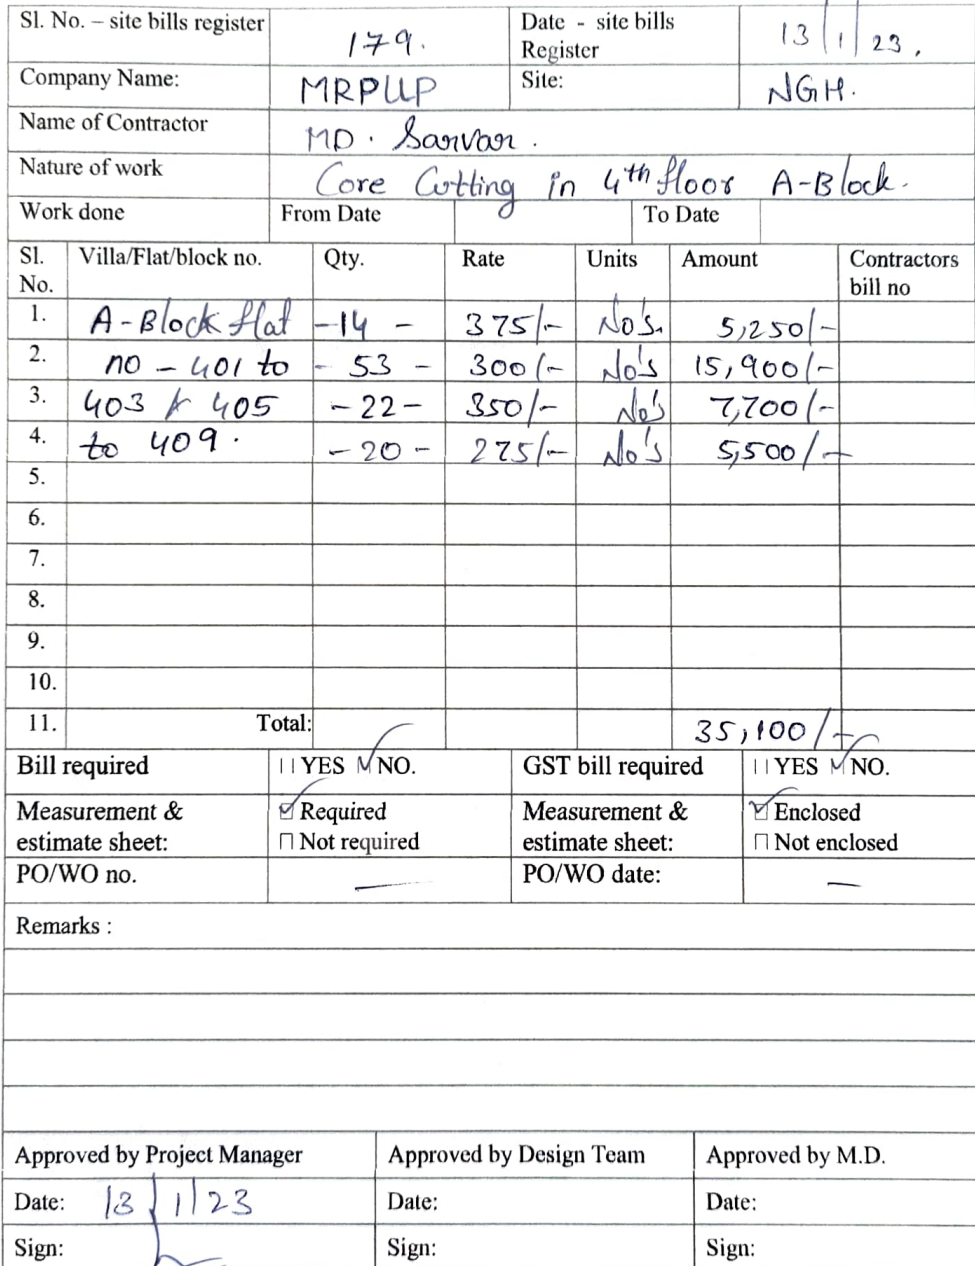 Sl. No. – site bills register 179. Date - site bills Register 13/1/23.
Company Name: MRPLLP Site: NGH.
Name of Contractor MD. Sarvar.
Nature of work Core Cutting in 4th floor A-Block.
Work done From Date To Date
Sl. No. Villa/Flat/block no. Qty. Rate Units Amount Contractors bill no
1. A-Block flat -14- 375/- No's. 5,250/-
2. no - 401 to - 53 - 300/- No's 15,900/-
3. 403 & 405 -22- 350/- No's 7,700/-
4. to 409. -20- 275/- No's 5,500/-
5.
6.
7.
8.
9.
10.
11. Total: 35,100/-
Bill required YES NO. GST bill required YES NO.
Measurement & estimate sheet: Required Not required Measurement & estimate sheet: Enclosed Not enclosed
PO/WO no. — PO/WO date: —
Remarks :
Approved by Project Manager Approved by Design Team Approved by M.D.
Date: 13/1/23 Date: Date:
Sign: Sign: Sign: